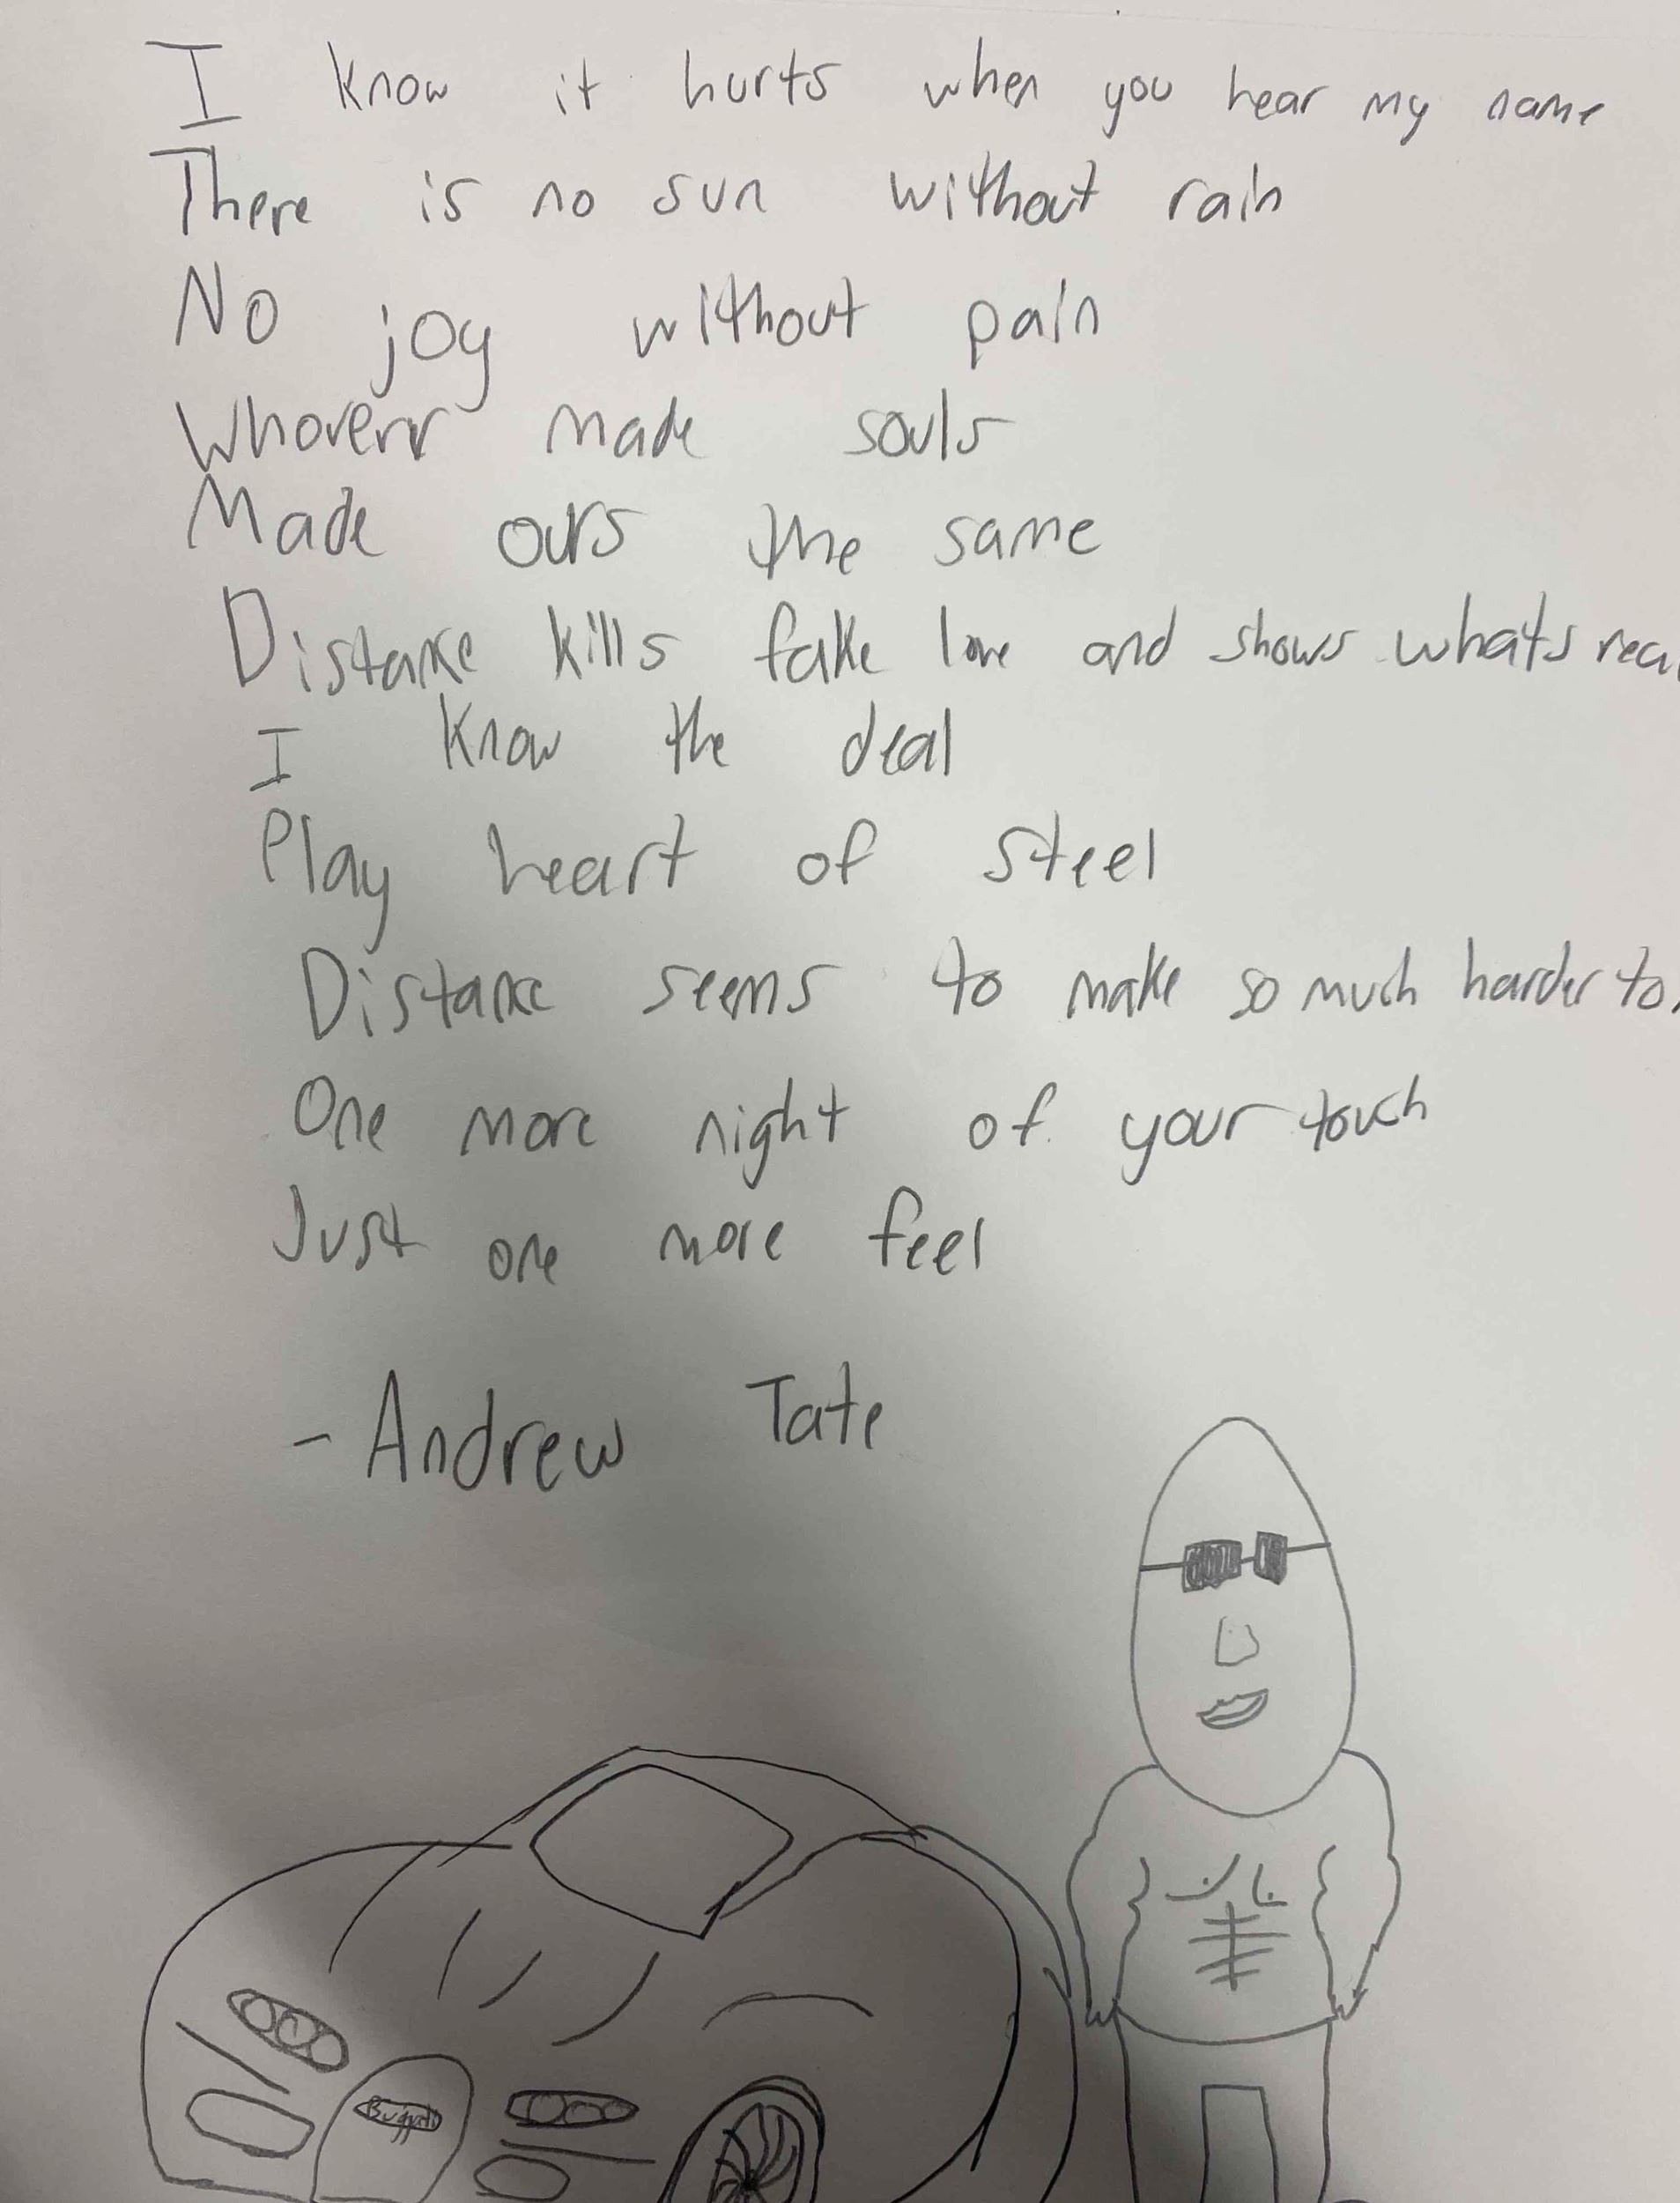 I know it hurts when you hear my name
There is no sun without rain
No joy without pain
Whoverr made souls
Made ours the same
Distance kills fake love and shows whats rea
I know the deal
Play heart of steel
Distance seems to make so much harder to
One more night of your touch
Just one more feel
- Andrew Tate
Buggati